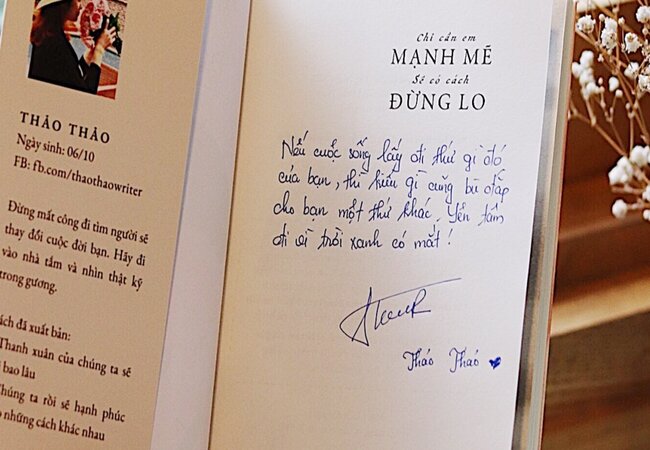 THẢO THẢO
Ngày sinh: 06/10
FB: fb.com/thaothaowriter
Đừng mất công đi tìm người sẽ
thay đổi cuộc đời bạn. Hãy đi
vào nhà tắm và nhìn thật kỹ
trong gương.
ách đã xuất bản:
Thanh xuân của chúng ta sẽ
bao lâu
Chúng ta rồi sẽ hạnh phúc
o những cách khác nhau
Chỉ cần em
MẠNH MẼ
Sẽ có cách
ĐỪNG LO
Nếu cuộc sống lấy đi thứ gì đó
của bạn, thì kiểu gì cũng bù đắp
cho bạn một thứ khác. Yên tâm
đi vì trời xanh có mắt!
Thảo Thảo